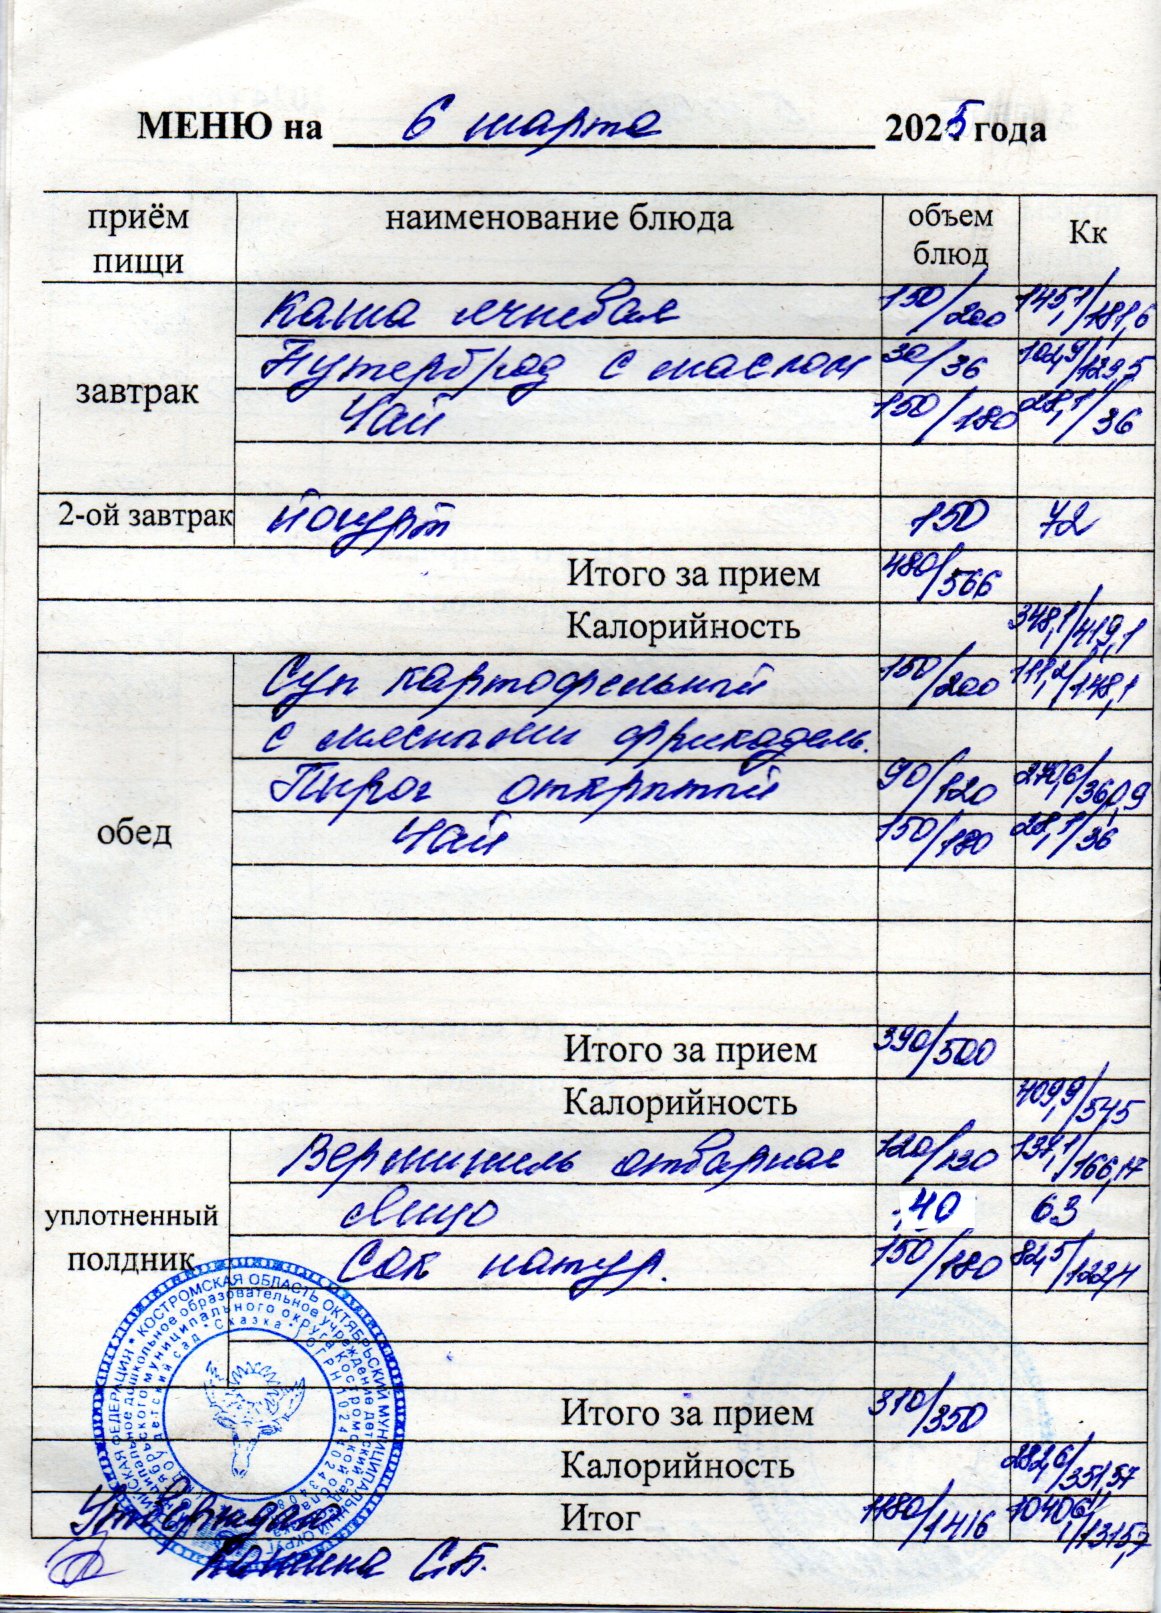 МЕНЮ на 6 марта 2025 года
приём пищи наименование блюда объем блюд Кк
завтрак
Каша ячневая 150/200 145,1/181,6
Бутерброд с маслом 30/36 102,9/129,5
Чай 150/180 28,1/36
2-ой завтрак йогурт 150 72
Итого за прием 480/566
Калорийность 348,1/419,1
обед
Суп картофельный 150/200 111,2/148,1
с мясными фрикадель.
Пирог открытый 90/120 270,6/360,9
Чай 150/180 28,1/36
Итого за прием 390/500
Калорийность 409,9/545
уплотненный полдник
Вермишель отварная 120/130 137,1/166,17
Яйцо 40 63
Сок натур. 150/180 82,5/122,4
Итого за прием 310/350
Калорийность 282,6/351,57
Итог 1180/1416 1040,6/1315,7
КОСТРОМСКАЯ ОБЛАСТЬ ОКТЯБРЬСКИЙ МУНИЦИПАЛЬНЫЙ ОКРУГ
дошкольное образовательное учреждение детский сад
муниципального округа Костромской области
детский сад "Сказка"
Утверждаю
С.Б.